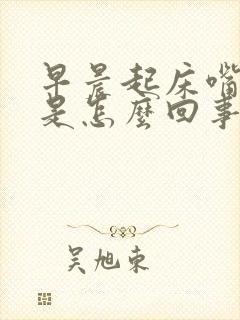 早晨起床嘴
是怎麼回事
吴旭东